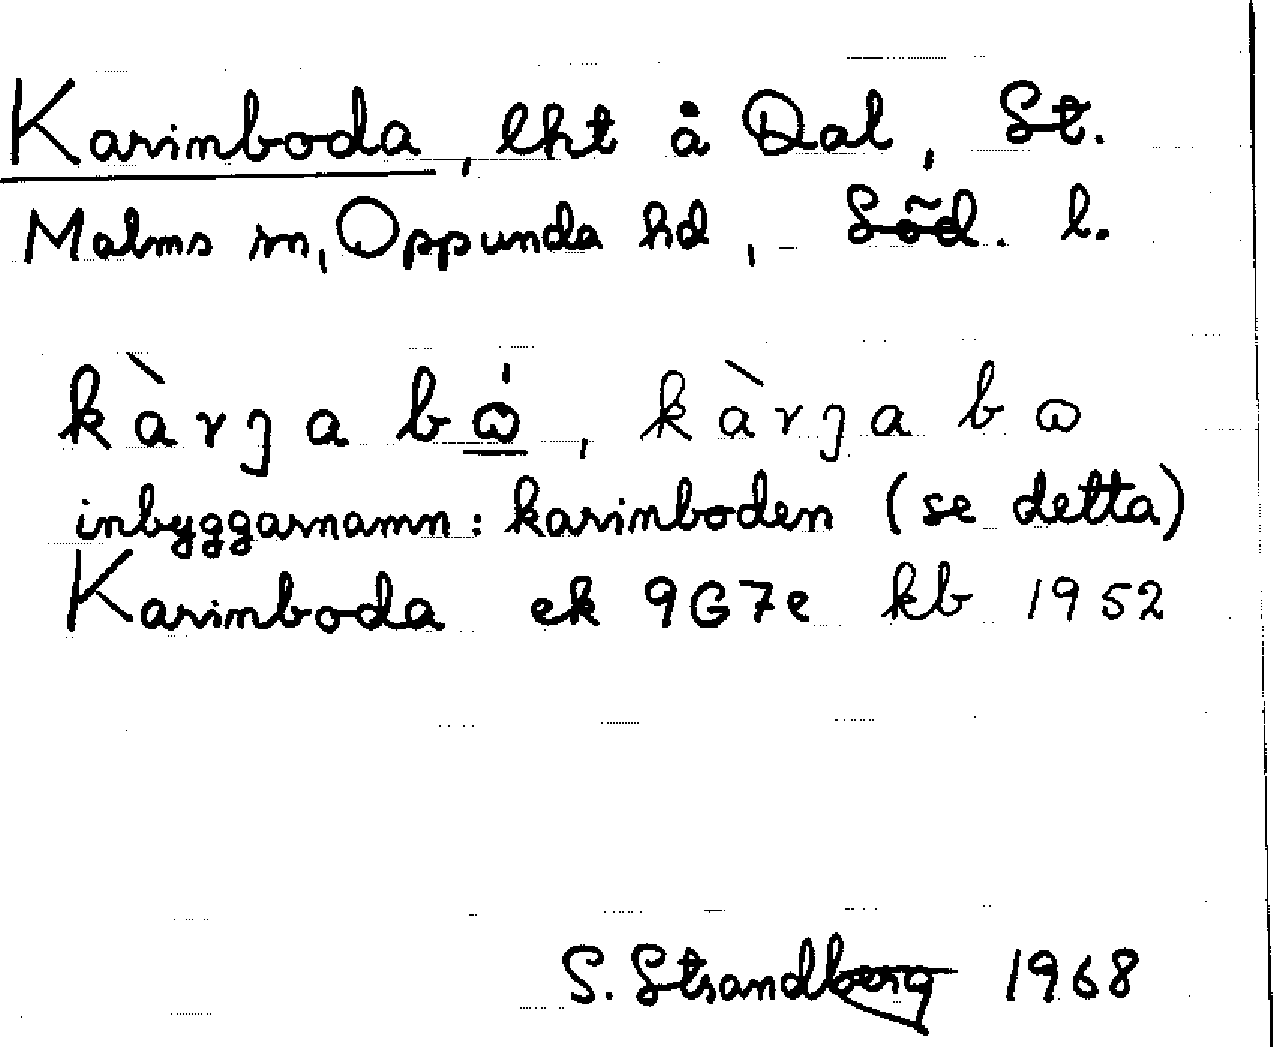 Karinboda, lht å Dal, St.
Malms sn, Oppunda hd, Söd. l.
kàrŋabɷ́, kàrŋabɷ
inbyggarnamn: karinboden (se detta)
Karinboda ek 9G7e kb 1952
S. Strandberg 1968